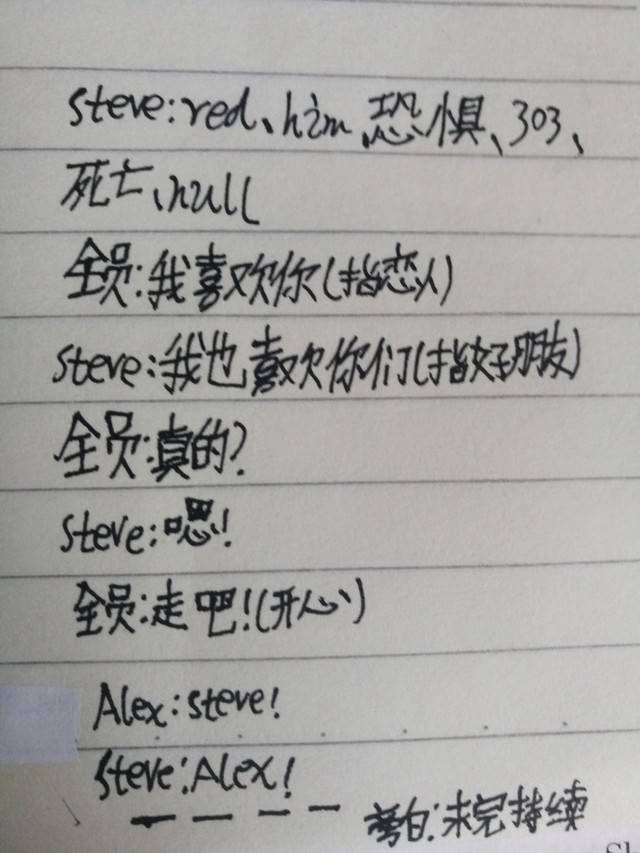 steve:red、him、恐惧、303、
死亡、null
全员:我喜欢你(指恋人)
steve:我也喜欢你们(指好朋友)
全员:真的?
steve:嗯!
全员:走吧!(开心)
Alex:steve!
steve:Alex!
————旁白:未完持续